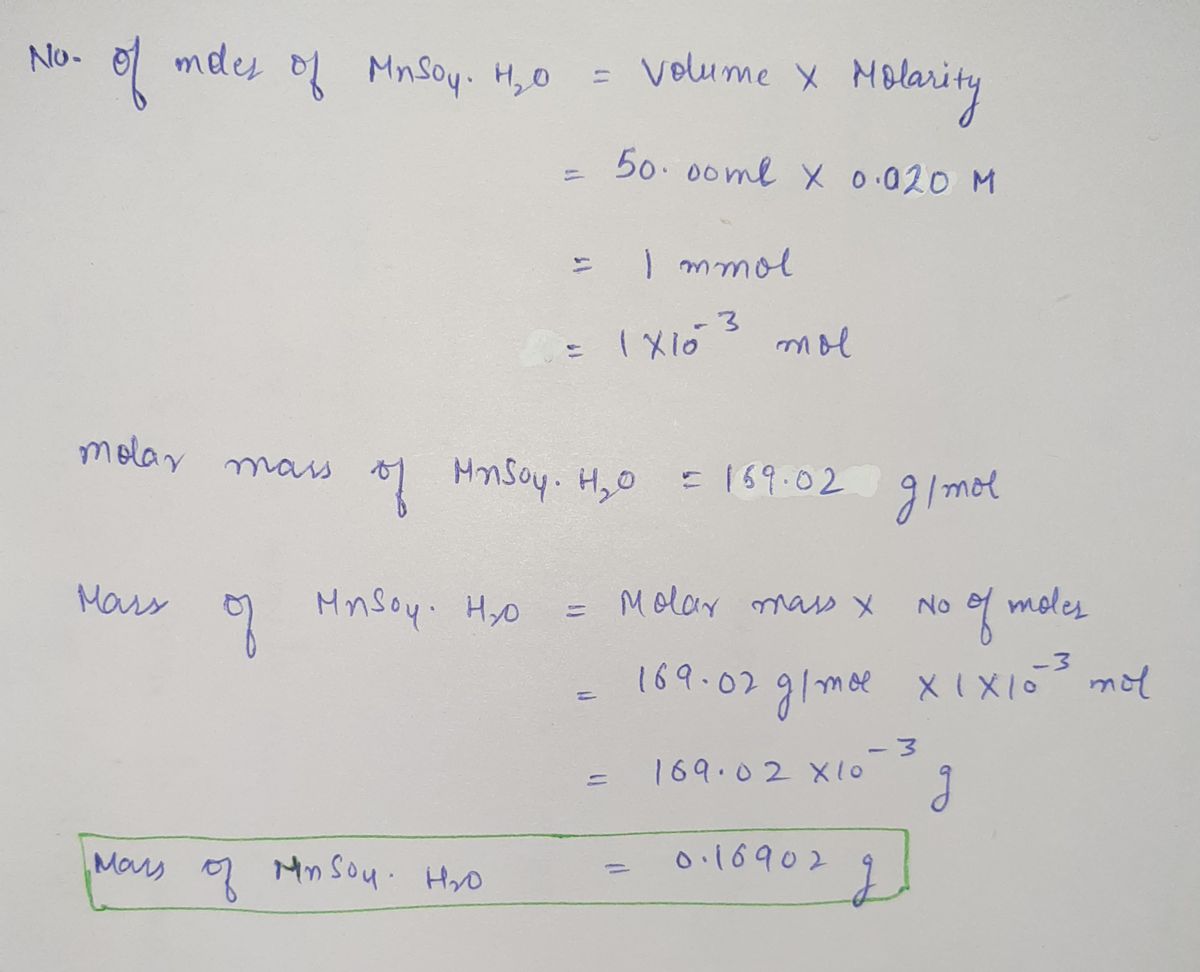 No. of moles of MnSO4. H2O = Volume x Molarity
= 50.00ml x 0.020 M
= 1 mmol
= 1 x 10^-3 mol
molar mass of MnSO4. H2O = 169.02 g/mol
Mass of MnSO4. H2O = Molar mass x No of moles
= 169.02 g/mol x 1 x 10^-3 mol
= 169.02 x 10^-3 g
Mass of MnSO4. H2O = 0.16902 g